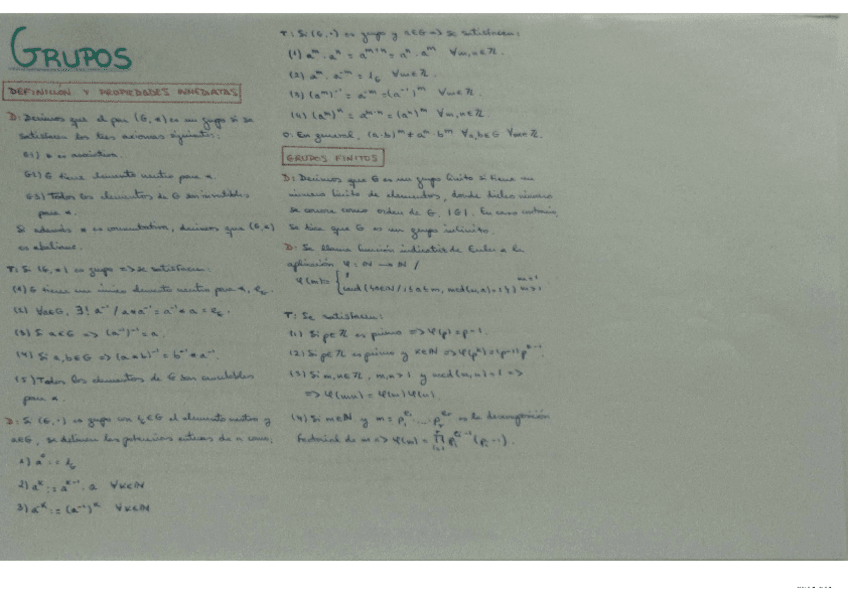 GRUPOS
DEFINICIÓN Y PROPIEDADES INMEDIATAS
D: Decimos que el par (G, *) es un grupo si se
satisfacen los tres axiomas siguientes:
G1) * es asociativa.
G2) G tiene elemento neutro para *.
G3) Todos los elementos de G son invertibles
para *.
Si además * es conmutativa, decimos que (G, *)
es abeliano.
T: Si (G, *) es grupo => se satisfacen:
(1) G tiene un único elemento neutro para *, e_G.
(2) ∀a∈G, ∃! a⁻¹ / a*a⁻¹ = a⁻¹*a = e_G.
(3) Si a∈G => (a⁻¹)⁻¹ = a.
(4) Si a,b∈G => (a*b)⁻¹ = b⁻¹*a⁻¹.
(5) Todos los elementos de G son
para *.
D: Si (G, ·) es grupo con 1_G∈G el elemento neutro y
a∈G, se definen las potencias enteras de a como:
1) a⁰ := 1_G
2) aᵏ := aᵏ⁻¹ · a ∀k∈N
3) a⁻ᵏ := (a⁻¹)ᵏ ∀k∈N
T: Si (G, ·) es grupo y a∈G => se satisfacen:
(1) aᵐ · aⁿ = aᵐ⁺ⁿ = aⁿ · aᵐ ∀m,n∈Z.
(2) aᵐ · a⁻ᵐ = 1_G ∀m∈Z.
(3) (aᵐ)⁻¹ = a⁻ᵐ = (a⁻¹)ᵐ ∀m∈Z.
(4) (aᵐ)ⁿ = aᵐ·ⁿ = (aⁿ)ᵐ ∀m,n∈Z.
O: En general, (a·b)ᵐ ≠ aᵐ·bᵐ ∀a,b∈G ∀m∈Z.
GRUPOS FINITOS
D: Decimos que G es un grupo finito si tiene un
número finito de elementos, donde dicho número
se conoce como orden de G, |G|. En caso contrario,
se dice que G es un grupo infinito.
D: Se llama función indicatriz de Euler a la
aplicación φ: N → N /
φ(m) = { 1 m=1
card({k∈N / 1≤k≤m, mcd(m,k)=1}) m>1
T: Se satisfacen:
(1) Si p∈Z es primo => φ(p) = p-1.
(2) Si p∈Z es primo y k∈N => φ(pᵏ) = (p-1)pᵏ⁻¹.
(3) Si m,n∈Z, m,n>1 y mcd(m,n)=1 =>
=> φ(mn) = φ(m)φ(n).
(4) Si m∈N y m = p₁^e₁ · ... · pᵣ^eᵣ es la descomposición
factorial de m => φ(m) = ∏ᵢ₌₁ʳ pᵢ^(eᵢ-1) (pᵢ-1).